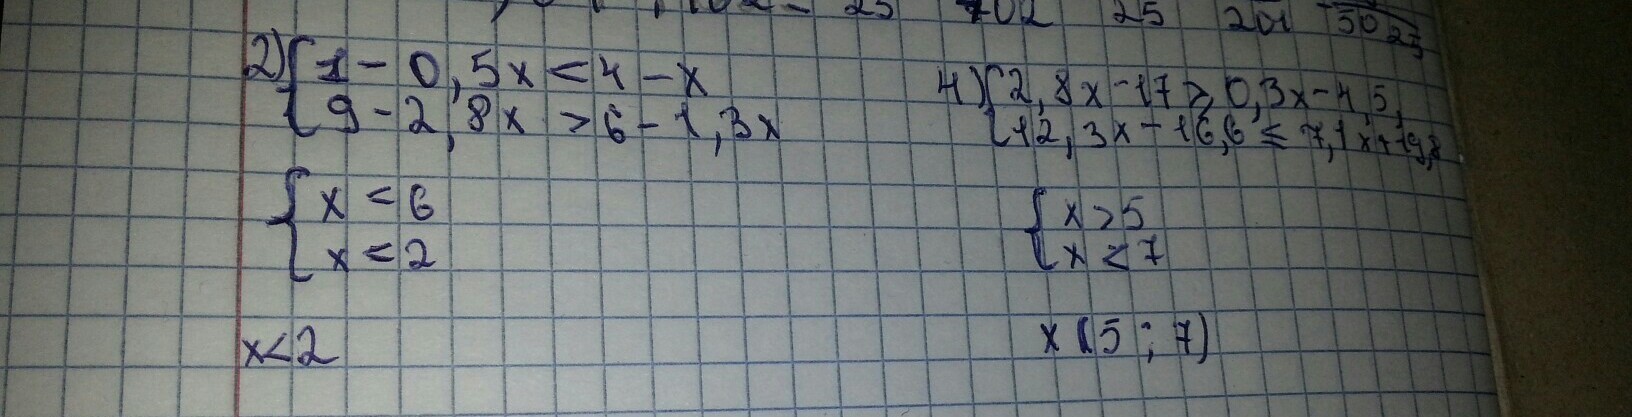 25 102 25 201 50 25
2) { 1 - 0,5x < 4 - x
{ 9 - 2,8x > 6 - 1,3x
{ x < 6
{ x < 2
x < 2
4) { 2,8x - 17 ≥ 0,3x - 4,5,
{ 12,3x - 16,6 ≤ 7,1x + 19,8
{ x > 5
{ x < 7
x (5 ; 7)